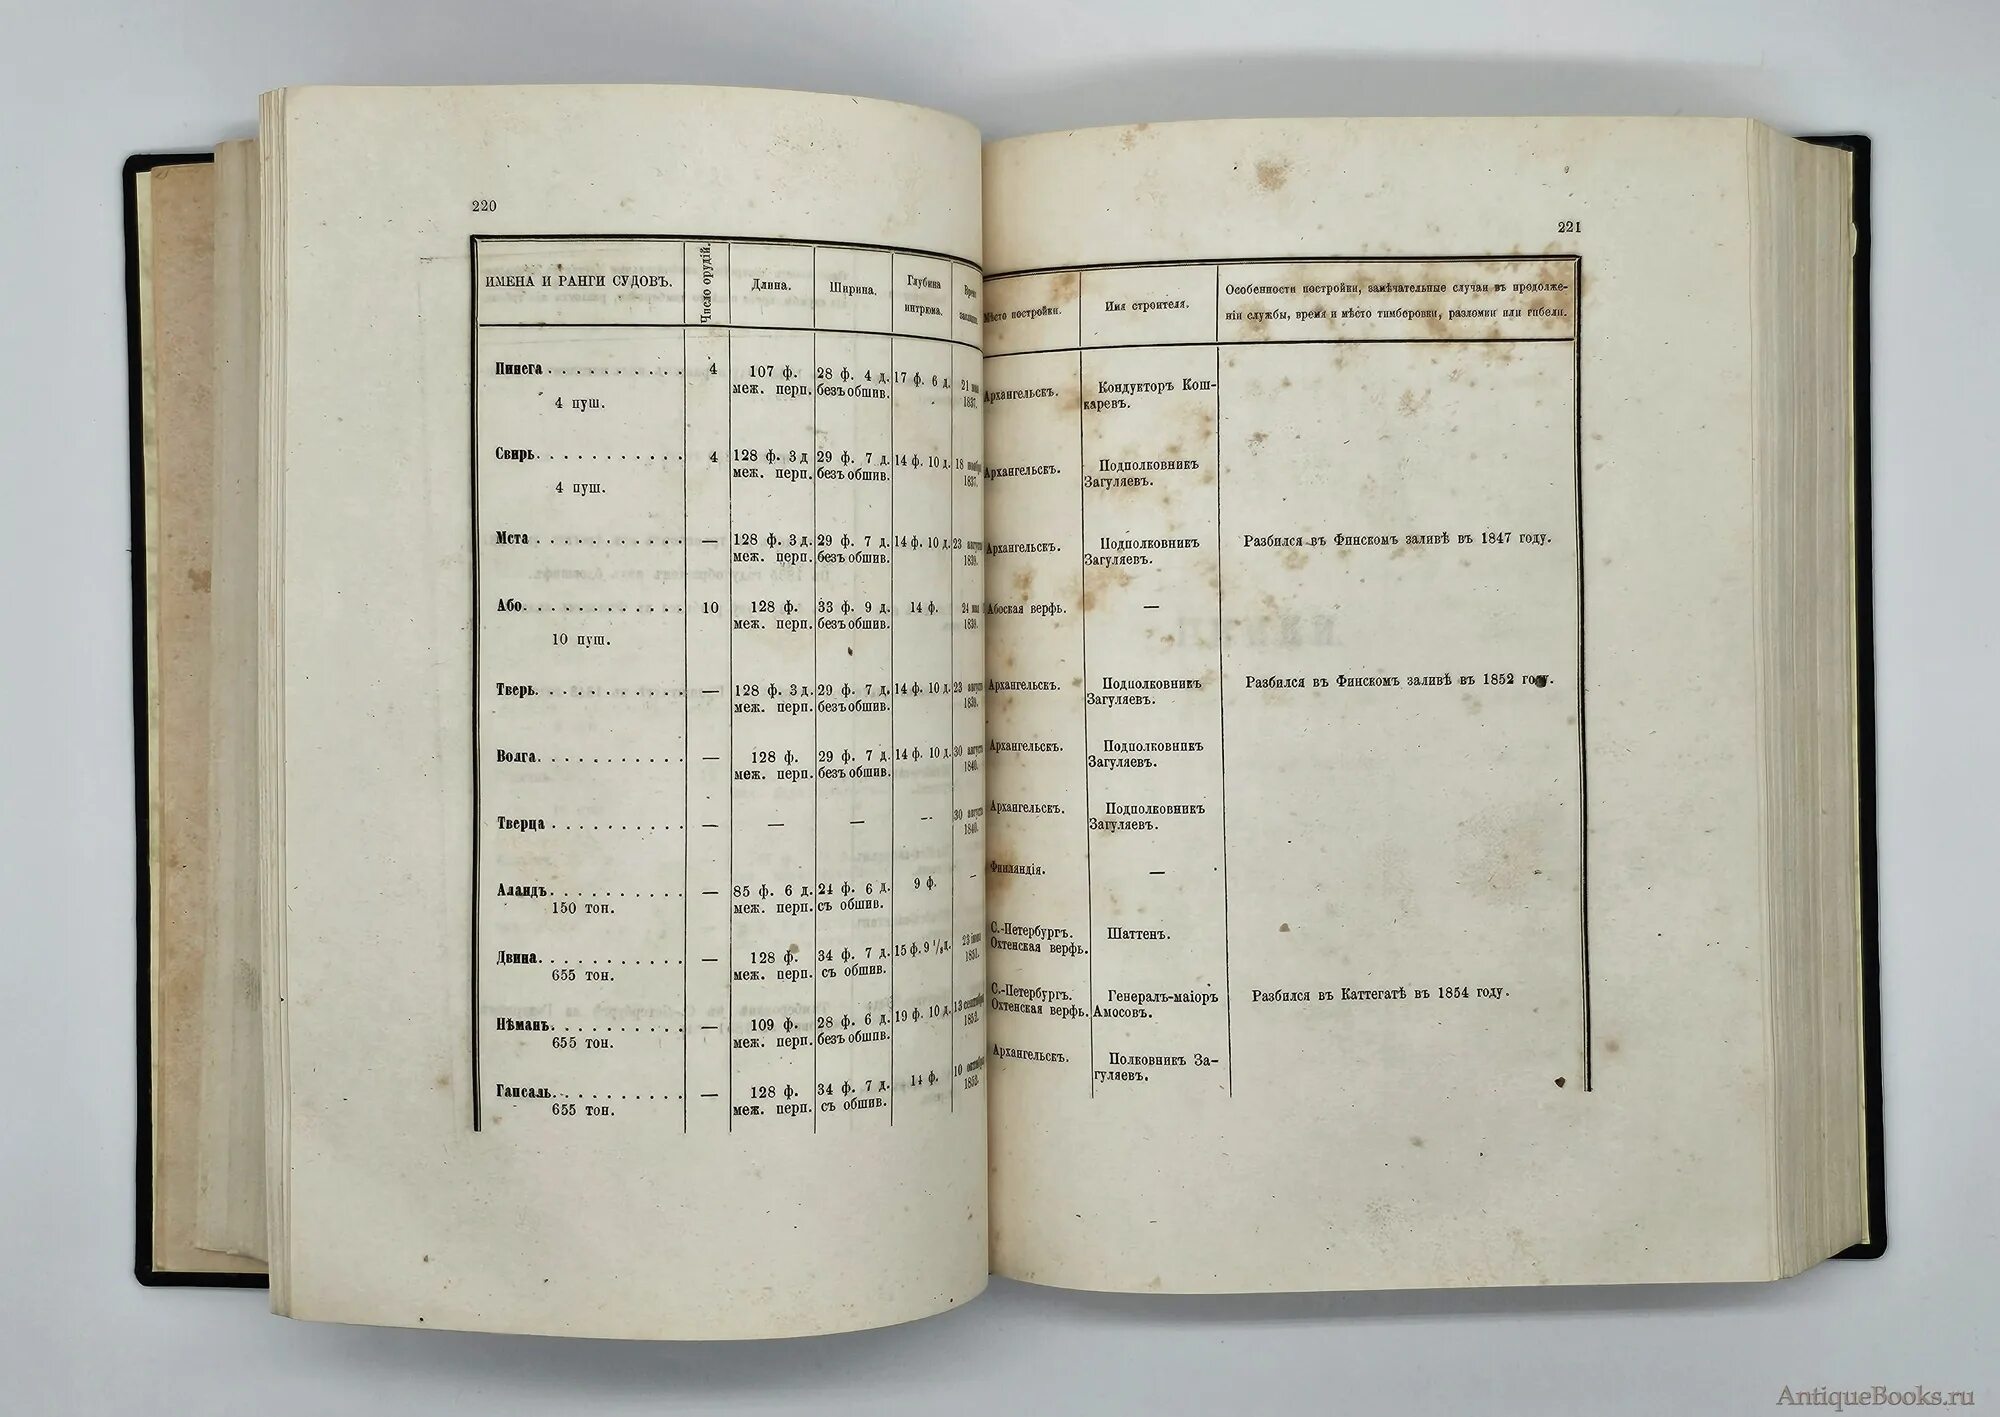 220
ИМЕНА И РАНГИ СУДОВЪ.
Число орудій.
Длина.
Ширина.
Глубина
интрюма.
Время
Пинега
4
107 ф.
меж. перп.
28 ф. 4 д.
безъ обшив.
17 ф. 6 д.
21 мая
1837.
4 пуш.
Свирь
4
128 ф. 3 д
меж. перп.
29 ф. 7 д.
безъ обшив.
14 ф. 10 д.
18 ноября
1837.
4 пуш.
Мста
—
128 ф. 3 д.
меж. перп.
29 ф. 7 д.
безъ обшив.
14 ф. 10 д.
23 августа
1839.
Або
10
128 ф.
меж. перп.
33 ф. 9 д.
безъ обшив.
14 ф.
24 мая
1839.
10 пуш.
Тверь
—
128 ф. 3 д.
меж. перп.
29 ф. 7 д.
безъ обшив.
14 ф. 10 д.
23 августа
1839.
Волга
—
128 ф.
меж. перп.
29 ф. 7 д.
безъ обшив.
14 ф. 10 д.
30 августа
1840.
Тверца
—
—
—
—
30 августа
1840.
Аландъ
—
85 ф. 6 д.
меж. перп.
24 ф. 6 д.
съ обшив.
9 ф.
—
150 тон.
Двина
—
128 ф.
меж. перп.
34 ф. 7 д.
съ обшив.
15 ф. 9 1/8 д.
1851.
655 тон.
Нѣманъ
—
109 ф.
меж. перп.
28 ф. 6 д.
безъ обшив.
19 ф. 10 д.
13 сентября
1852.
655 тон.
Гапсаль
—
128 ф.
меж. перп.
34 ф. 7 д.
съ обшив.
14 ф.
10 октября
1852.
655 тон.
221
Мѣсто постройки.
Имя строителя.
Особенности постройки, замѣчательные случаи въ продолже-
ніи службы, время и мѣсто тимберовки, разломки или гибели.
Архангельскъ.
Кондукторъ Кош-
каревъ.
Архангельскъ.
Подполковникъ
Загуляевъ.
Архангельскъ.
Подполковникъ
Загуляевъ.
Разбился въ Финскомъ заливѣ въ 1847 году.
Абоская верфь.
—
Архангельскъ.
Подполковникъ
Загуляевъ.
Разбился въ Финскомъ заливѣ въ 1852 году.
Архангельскъ.
Подполковникъ
Загуляевъ.
Архангельскъ.
Подполковникъ
Загуляевъ.
Финляндія.
—
С.-Петербургъ.
Охтенская верфь.
Шаттенъ.
С.-Петербургъ.
Охтенская верфь.
Генералъ-маіоръ
Амосовъ.
Разбился въ Каттегатѣ въ 1854 году.
Архангельскъ.
Полковникъ За-
гуляевъ.
AntiqueBooks.ru